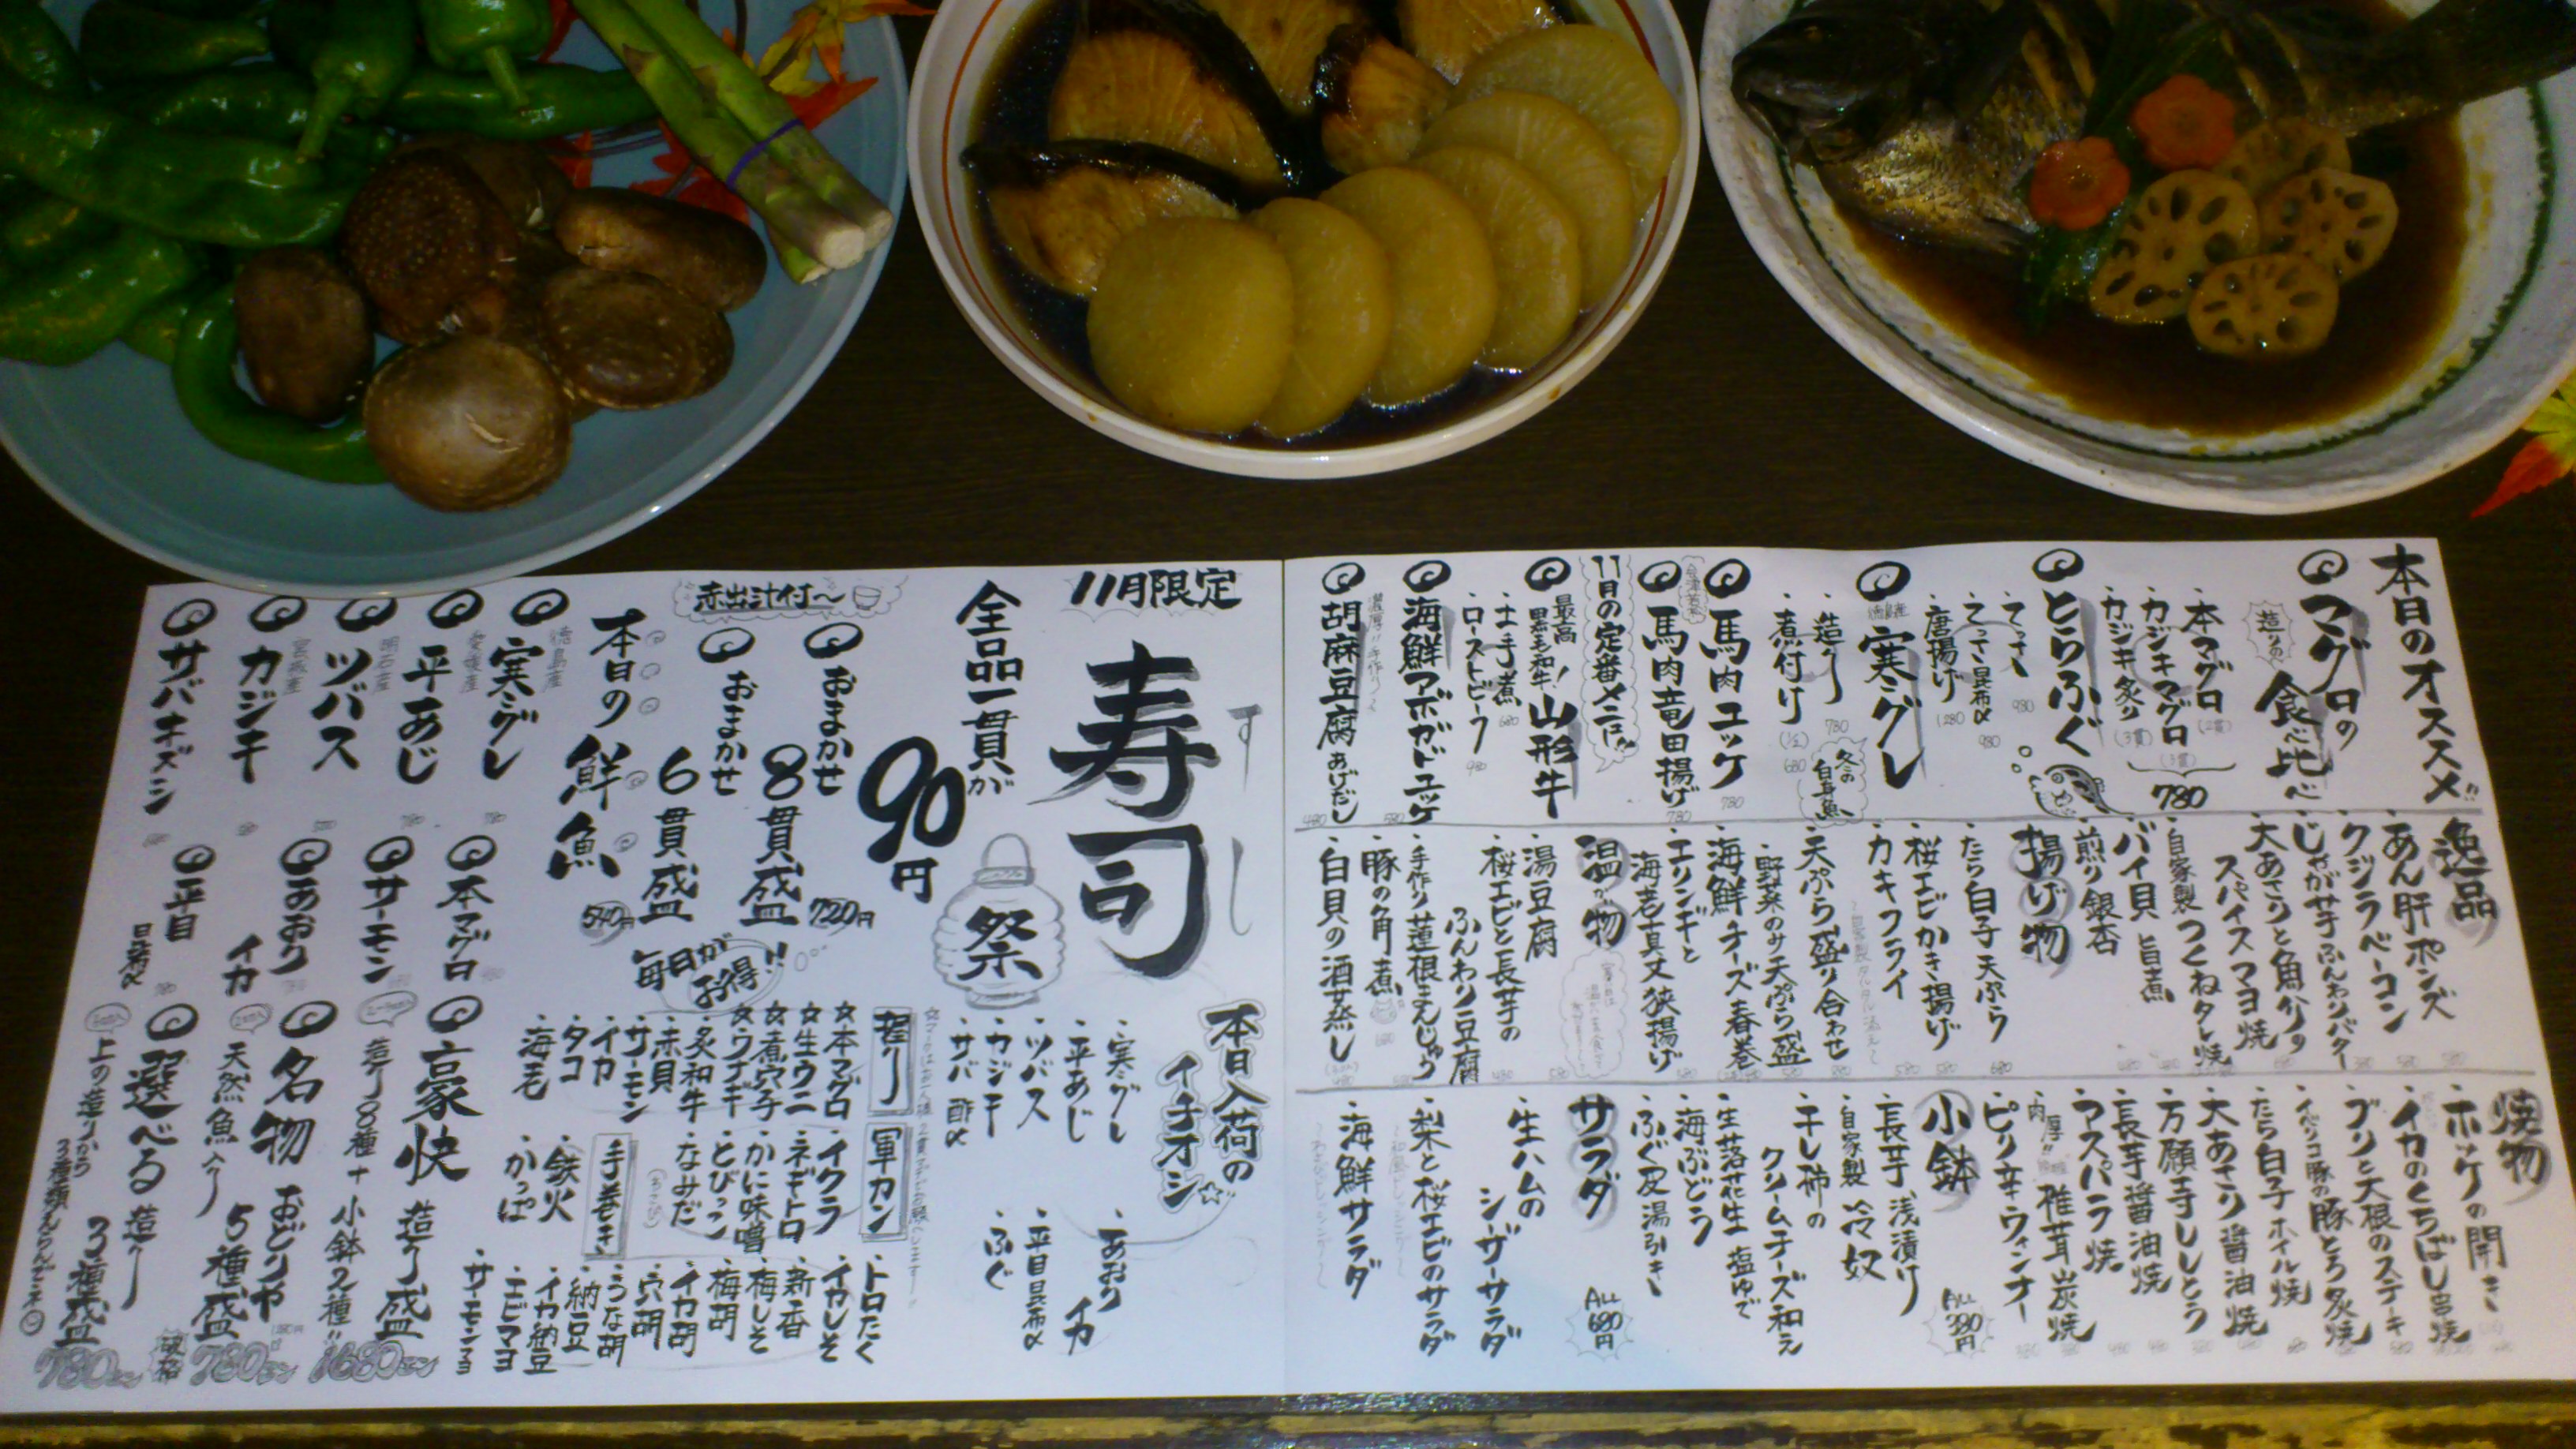 本日のオススメ!!
マグロの
造りの
食べ比べ
・本マグロ
(2貫)
・カジキマグロ
(3貫)
・カジキ炙り
(3貫)
780
とらふぐ
・てっさ
980
・てっさ昆布〆
980
・唐揚げ
1280
徳島産
寒グレ
・造り
780
・煮付け
(½) 680
冬の白身魚
馬肉ユッケ
780
会津若松
馬肉竜田揚げ
780
11月の定番メニュー!!
最高!
黒毛和牛
山形牛
・土手煮
680
・ローストビーフ
980
海鮮アボガドユッケ
580
濃厚!!手作り
胡麻豆腐あげだし
480
逸品
・あん肝ポンズ
・クジラベーコン
・じゃが芋ふんわりバター
・大あさりと魚介の
スパイスマヨ焼
・自家製つくねタレ焼
・バイ貝 旨煮
・煎り銀杏
揚げ物
・たら白子天ぷら
・桜エビかき揚げ
・カキフライ
・天ぷら盛り合わせ
・野菜のみ天ぷら盛
・海鮮チーズ春巻
・エリンギと
海老真丈挟揚げ
温か物
・湯豆腐
・桜エビと長芋の
ふんわり豆腐
・手作り蓮根まんじゅう
・豚の角煮
・白貝の酒蒸し
焼物
・ホッケの開き
・イカのくちばし串焼
・ブリと大根のステーキ
・イベリコ豚の豚とろ炙焼
・たら白子ホイル焼
・大あさり醤油焼
・万願寺ししとう
・長芋醤油焼
・アスパラ焼
・肉厚!! 椎茸炭焼
・ピリ辛ウィンナー
小鉢
ALL 380円
・長芋浅漬け
・自家製 冷奴
・干し柿の
クリームチーズ和え
・生落花生 塩ゆで
・海ぶどう
・ふぐ皮湯引き
サラダ
ALL 680円
・生ハムの
シーザーサラダ
・梨と桜エビのサラダ
・海鮮サラダ
11月限定
寿司
すし
祭
全品一貫が
90円
おまかせ
8貫盛
720円
おまかせ
6貫盛
540円
赤出汁付〜
毎日がお得!!
本日の鮮魚
徳島産
寒グレ
愛媛産
平あじ
明石産
ツバス
宮城産
カジキ
サバキズシ
本マグロ
サーモン
あおりイカ
平目
昆布〆
豪快
造り盛
造り8種+小鉢2種!!
1680エン
名物
おどりや
5種盛
天然魚入り
780エン
破格
選べる
造り
3種盛
上の造りから
3種類えらんで下さい
780エン
本日入荷の
イチオシ☆
・寒グレ
・平あじ
・ツバス
・カジキ
・サバ酢〆
・あおりイカ
・平目昆布〆
・ふぐ
握り
☆本マグロ
☆生ウニ
☆煮穴子
☆ウナギ
・炙和牛
・赤貝
・サーモン
・イカ
・タコ
・海老
軍カン
・イクラ
・ネギトロ
・かに味噌
・とびっこ
・なみだ
(わさび)
手巻き
・鉄火
・かっぱ
・トロたく
・イカしそ
・新香
・梅しそ
・梅胡
・イカ胡
・穴胡
・うな胡
・納豆
・イカ納豆
・エビマヨ
・サーモンマヨ